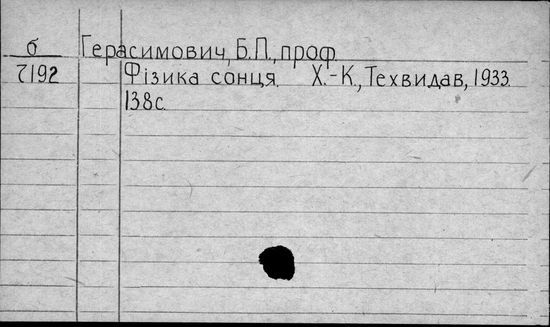 б Герасимович, Б.П., проф.
7192 Фізика сонця. Х.-К., Техвидав, 1933.
138с.